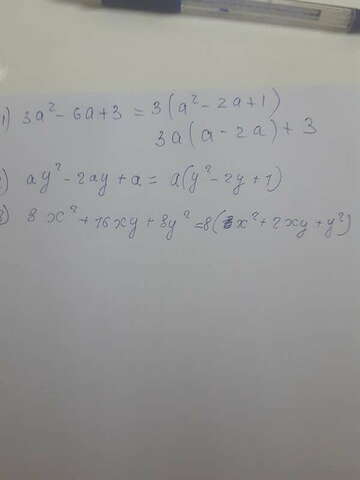 1) 3a² - 6a + 3 = 3(a² - 2a + 1)
3a(a - 2a) + 3
) ay² - 2ay + a = a(y² - 2y + 1)
) 8x² + 16xy + 8y² = 8(x² + 2xy + y²)